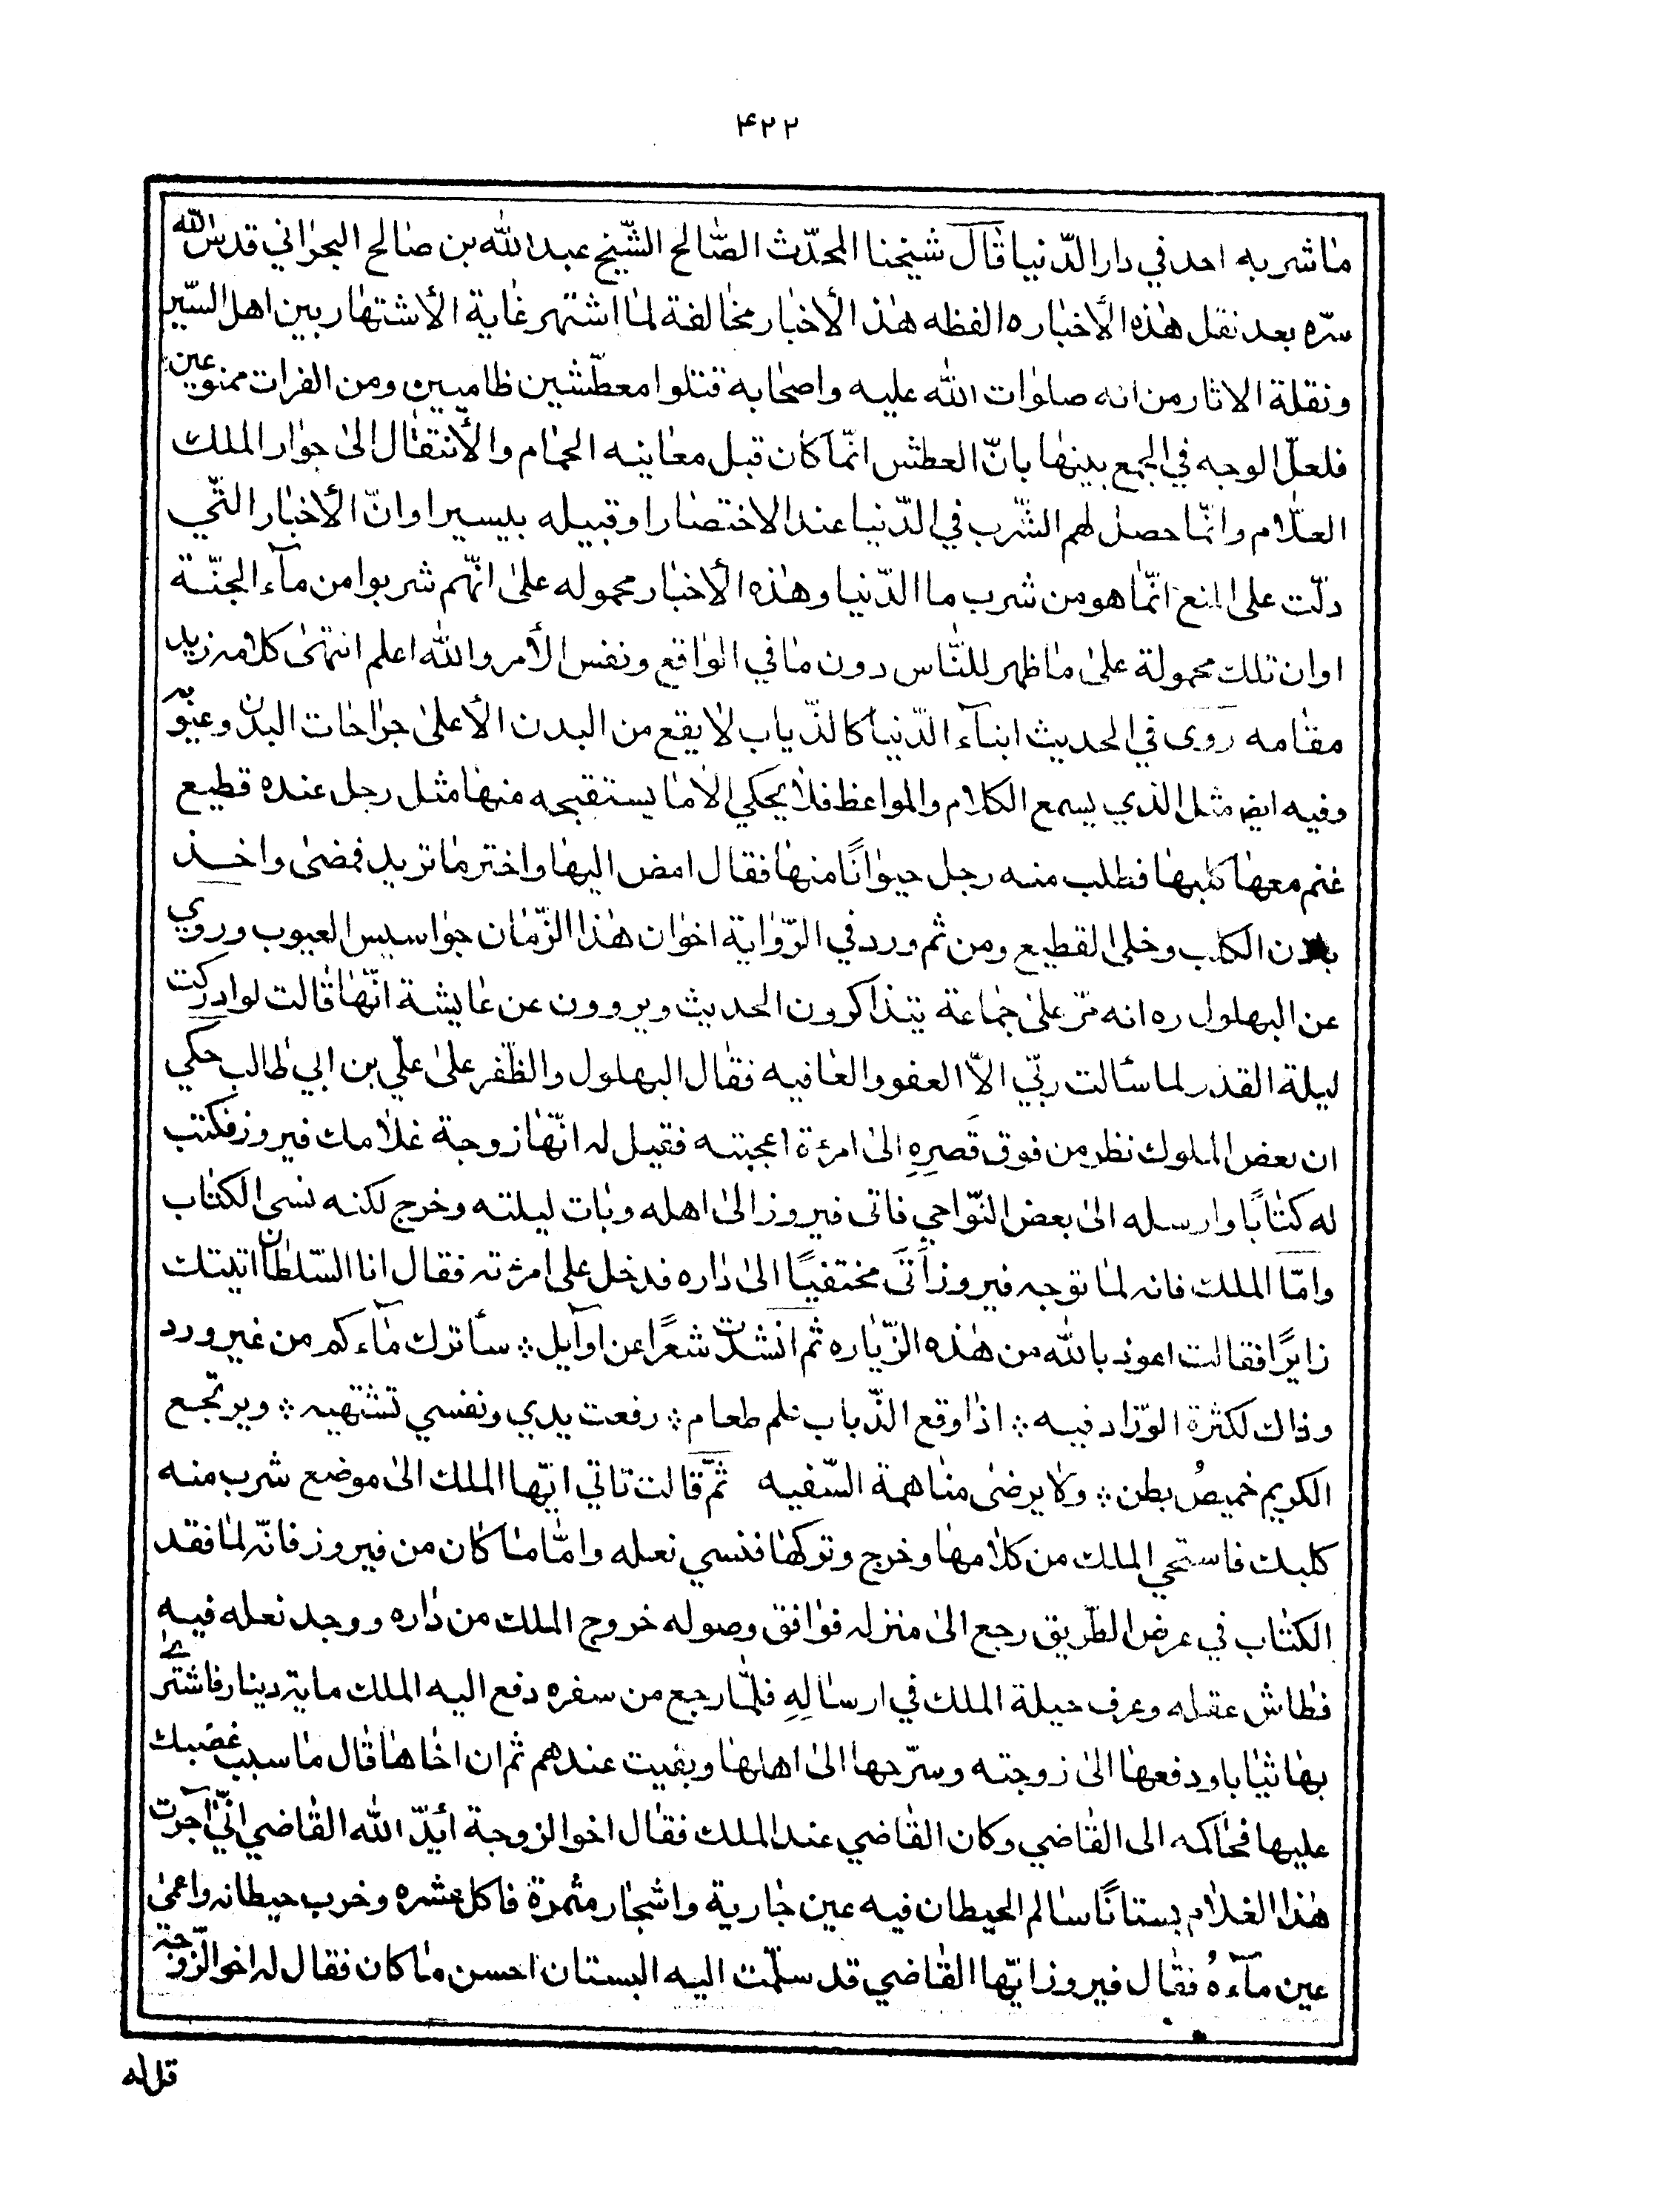 ۴۲۲
ما شربه احد في دار الدّنيا قال شيخنا المحدّث الصّالح الشّيخ عبد الله بن صالح البحراني قدس الله
سرّه بعد نقل هذه الأخبار ه الفظه هذ الأخبار مخالفة لما اشتهر غاية الأشتهار بين اهل السّير
ونقلة الاثار من انه صلوات الله عليه واصحابه قتلوا معطّشين ظاميين ومن الفرات ممنوعين
فلعلّ الوجه في الجمع بينها بانّ العطش انّما كان قبل معاينه الحمام والأنتقال الى جوار الملك
العلّام وانّما حصل لهم الشّرب في الدّنيا عند الاختضار او قبيله بيسير او انّ الأخبار الّتي
دلّت على المنع انّما هو من شرب ما الدّنيا وهذه الأخبار محموله على انّهم شربوا من مآء الجنّة
او ان تلك محمولة على ما ظهر للنّاس دون ما في الواقع ونفس الأمر والله اعلم انتهى كلامه زيد
مقامه روى في الحديث ابنآء الدّنيا كالذّياب لا يقع من البدن الأعلى جراحات البدن وعيوبه
وفيه ايض مثل الذي يسمع الكلام والمواعظ فلا يحكي الا ما يستقبحه منها مثل رجل عنده قطيع
غنم معها كلبها فطلب منه رجل حيوانًا منها فقال امض اليها واختر ما تريد فمضى واخذ
باذن الكلب وخلى القطيع ومن ثم ورد في الرّواية اخوان هذا الزّمان جواسيس العيوب وروي
عن البهلول ره انه مرّ على جماعة يتذاكرون الحديث ويروون عن عايشة انّها قالت لو ادركت
ليلة القدر لما سألت ربّي الاّ العفو والعافيه فقال البهلول والظّفر على علّي بن ابي طالب حكي
ان بعض الملوك نظر من فوق قَصرِهِ الى امرءة اعجبته فقيل له انّها زوجة غلامك فيروز فكتب
له كتابًا وارسله الى بعض النّواحي فاتى فيروز الى اهله وبات ليلته وخرج لكنه نسى الكتاب
وامّا الملك فانه لما توجه فيروز اَتَى مختفيًا الى داره فدخل على امرءته فقال انا السّلطان اتيتك
زايرًا فقالت اعوذ بالله من هذه الزّياره ثم انشدت شعرًا عن اوآيل ؞ سأترك مآءكم من غير ورد
وذاك لكثرة الورّاد فيه ؞ اذا وقع الذّباب علم طعام ؞ رفعت يدي ونفسي تشتهيه ؞ ويرتجع
الكريم خميصُ بطن ؞ ولا يرضى مناهمة السّفيه ثمّ قالت تاتي ايّها الملك الى موضع شرب منه
كلبك فاستحي الملك من كلامها وخرج وتركها فنسي نعله وامّا ما كان من فيروز فانّه لما فقد
الكتاب في عرض الطّريق رجع الى منزله فوافق وصوله خروج الملك من داره ووجد نعله فيه
فطاش عقله وعرف حيلة الملك في ارسالِهِ فلمّا رجع من سفره دفع اليه الملك ماية دينار فاشترى
بها ثيابا ودفعها الى زوجته وسرّحها الى اهلها وبقيت عندهم ثم ان اخاها قال ما سبب غضبك
عليها فحاكمه الى القاضي وكان القاضي عند الملك فقال اخو الزوجة أيّد الله القاضي انّي آجرت
هذا الغلام بستانًا سالم الحيطان فيه عين جارية واشجار مثمرة فاكل ثمره وخرب حيطانه واعمى
عين مآءهُ فقال فيروز ايّها القاضي قد سلّمت اليه البستان احسن ما كان فقال له اخو الزّوجة
قل له